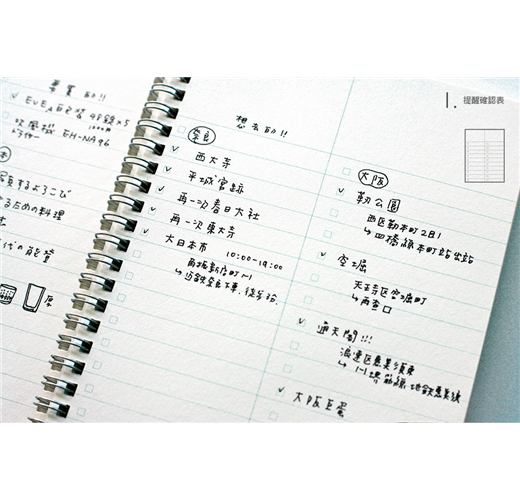 1. 提醒確認表
要買的!!
EVE 48錠×5
吹風機 EH-NA96
ドライヤー
するよろこび
るための料理
代の能登
想去的!!
奈良
西大寺
平城宮跡
再一次春日大社
再一次東大寺
大日本市 10:00-19:00
角振新屋町1-1
↳近鉄奈良下車.徒步
大阪
靱公園
西区靱本町2目1
↳四橋線本町站出站
空堀
天王寺区空堀町
↳兩查口
通天閣!!!
浪速区惠美須東
↳1-1堺筋線.地鉄惠美須
大阪巨蛋